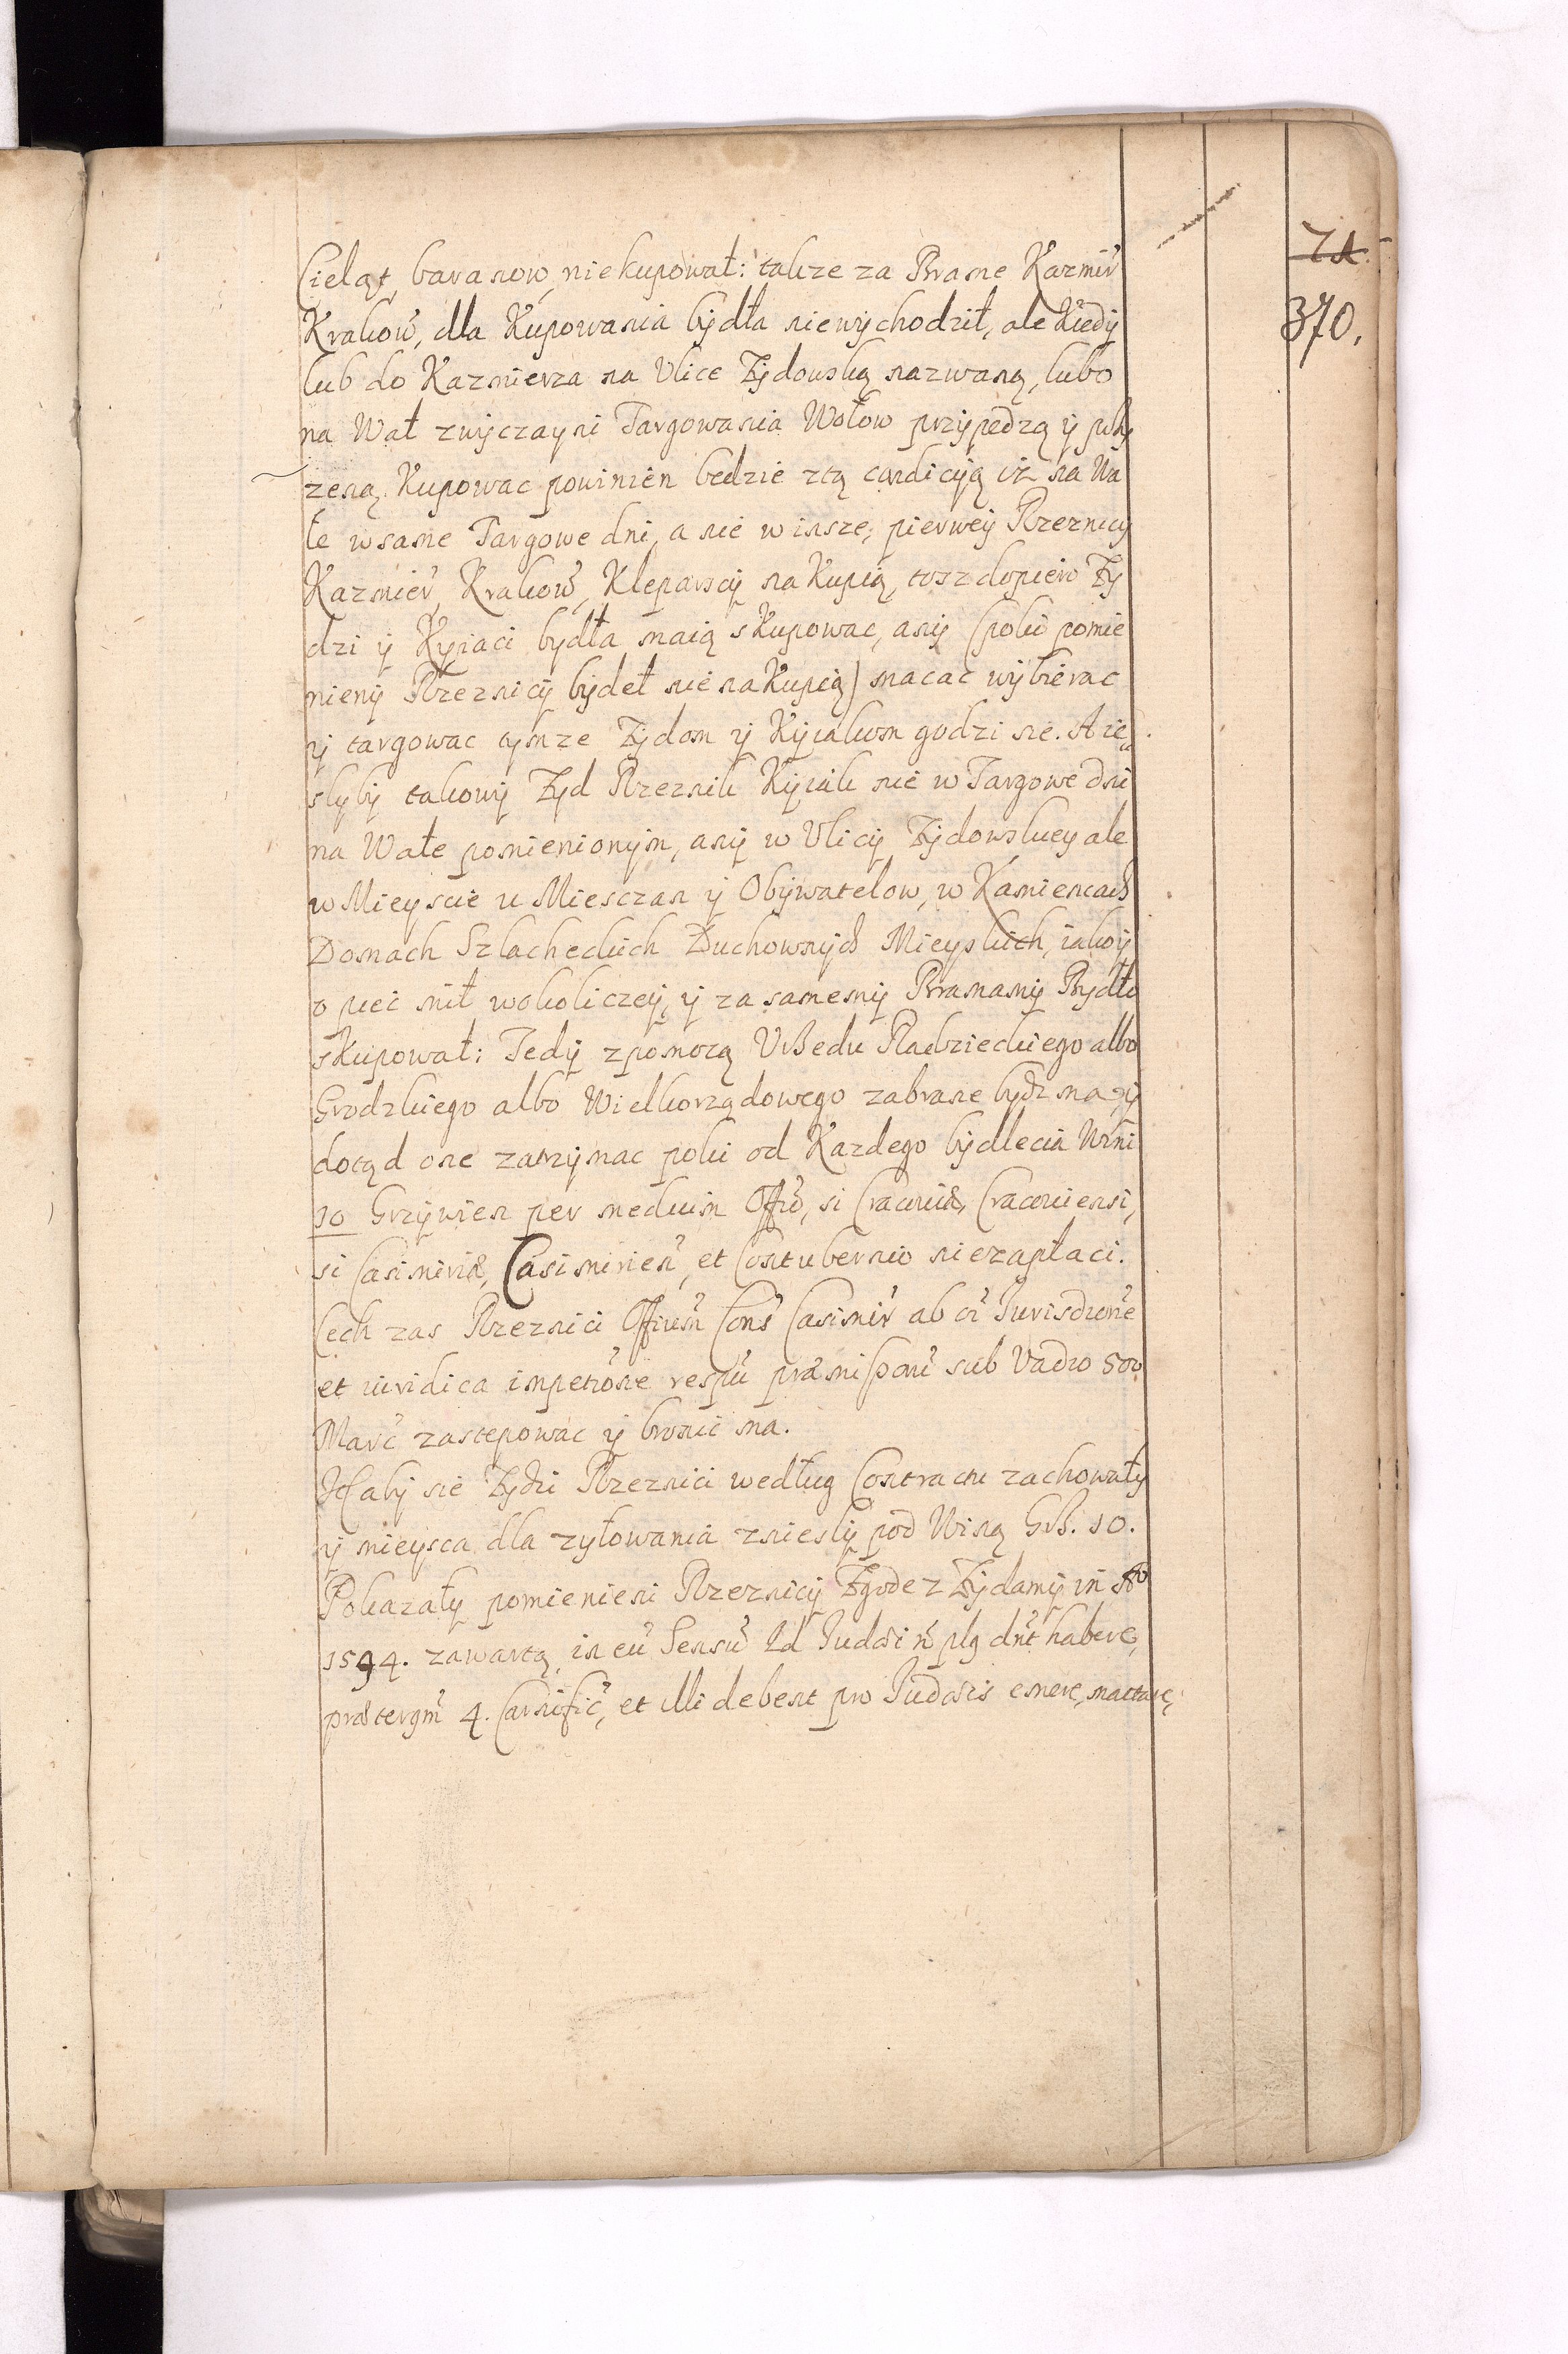 71.
370.
Cieląt, baranow, niekupował: takze za Brame Kazmir̃
Krakow̃, dla Kupowania bydła niewychodził, ale Kiedy
lub do Kazmierza na Vlice Zydowską nazwaną, lubo
na Wał zwyczayni Targowania Wołow przypedzą y przy
zeną. Kupowac powinien bedzie ztą condicyią iz na Wa
le wsame Targowe dni, a nie w insze, pierwey Rzeznicy
Kazmier̃, Krakow̃, Kleparscy na Kupią, tosz dopiero Zy
dzi y Kyiaci bydła maią sKupowac, any (poki pomie
nieny Rzeznicy bydeł nie na Kupią) macac wybierac
y targowac tymze Zydom y Kyiakom godzi sie. A ie„
slyby takowy Zyd Rzeznik Kyiak nie w Targowe dni
na Wale pomienionym, any w Vlicy Zydowskiey ale
w Mieyscie u Miesczan y Obywatelow, w Kamienicach
Domach Szlacheckich Duchownych Mieyskich, iakoy
o piec mil wokoliczey, y za samemy Bramamy Bydło
sKupował: Tedy zpomocą Vrzedu Radzieckiego albo
Grodzkiego albo Wielkorządowego zabrane bydz ma, y
dotąd one zatrzymac poki od Kazdego bydlecia Winy
10 Grzywien per medium Offō, si Cracoviæ, Cracoviensi,
si Casimiriæ, Casimirien̄, et Contubernio niezapłaci.
Cech zas Rzeznici Offium̃ Cons̃ Casimir̃ ab oĩ Jurisdione
et iuridica impetione respũ præmissorũ sub Vadio 500
Marc̃ zastepowac y bronic ma.
Itĩ aby sie Zydzi Rzeznici według Contractu zachowały
y mieysca dla zyłowania zniesly pod Winą Grz. 10.
Pokazały pomieneni Rzeznicy Zgode z Zydamy in Aō
1594. zawartą, in eũ Sensũ Qd Judæi ñ plg dñt habere,
præterqm̃ 4. Carnific̃, et illi debent pro Judæis emere, mactare,